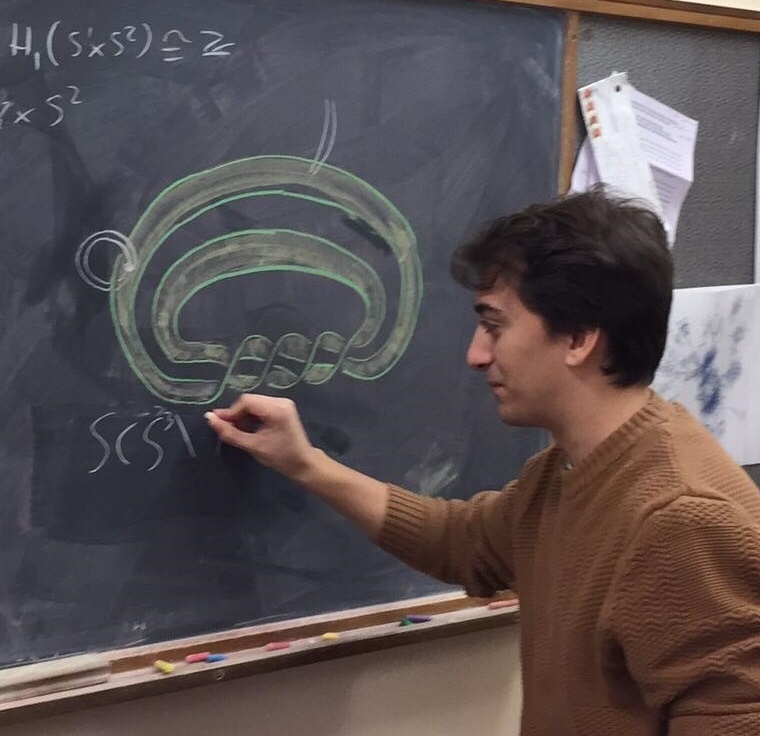 H₁(S¹×S²) ≅ ℤ
× S²
S(S³\